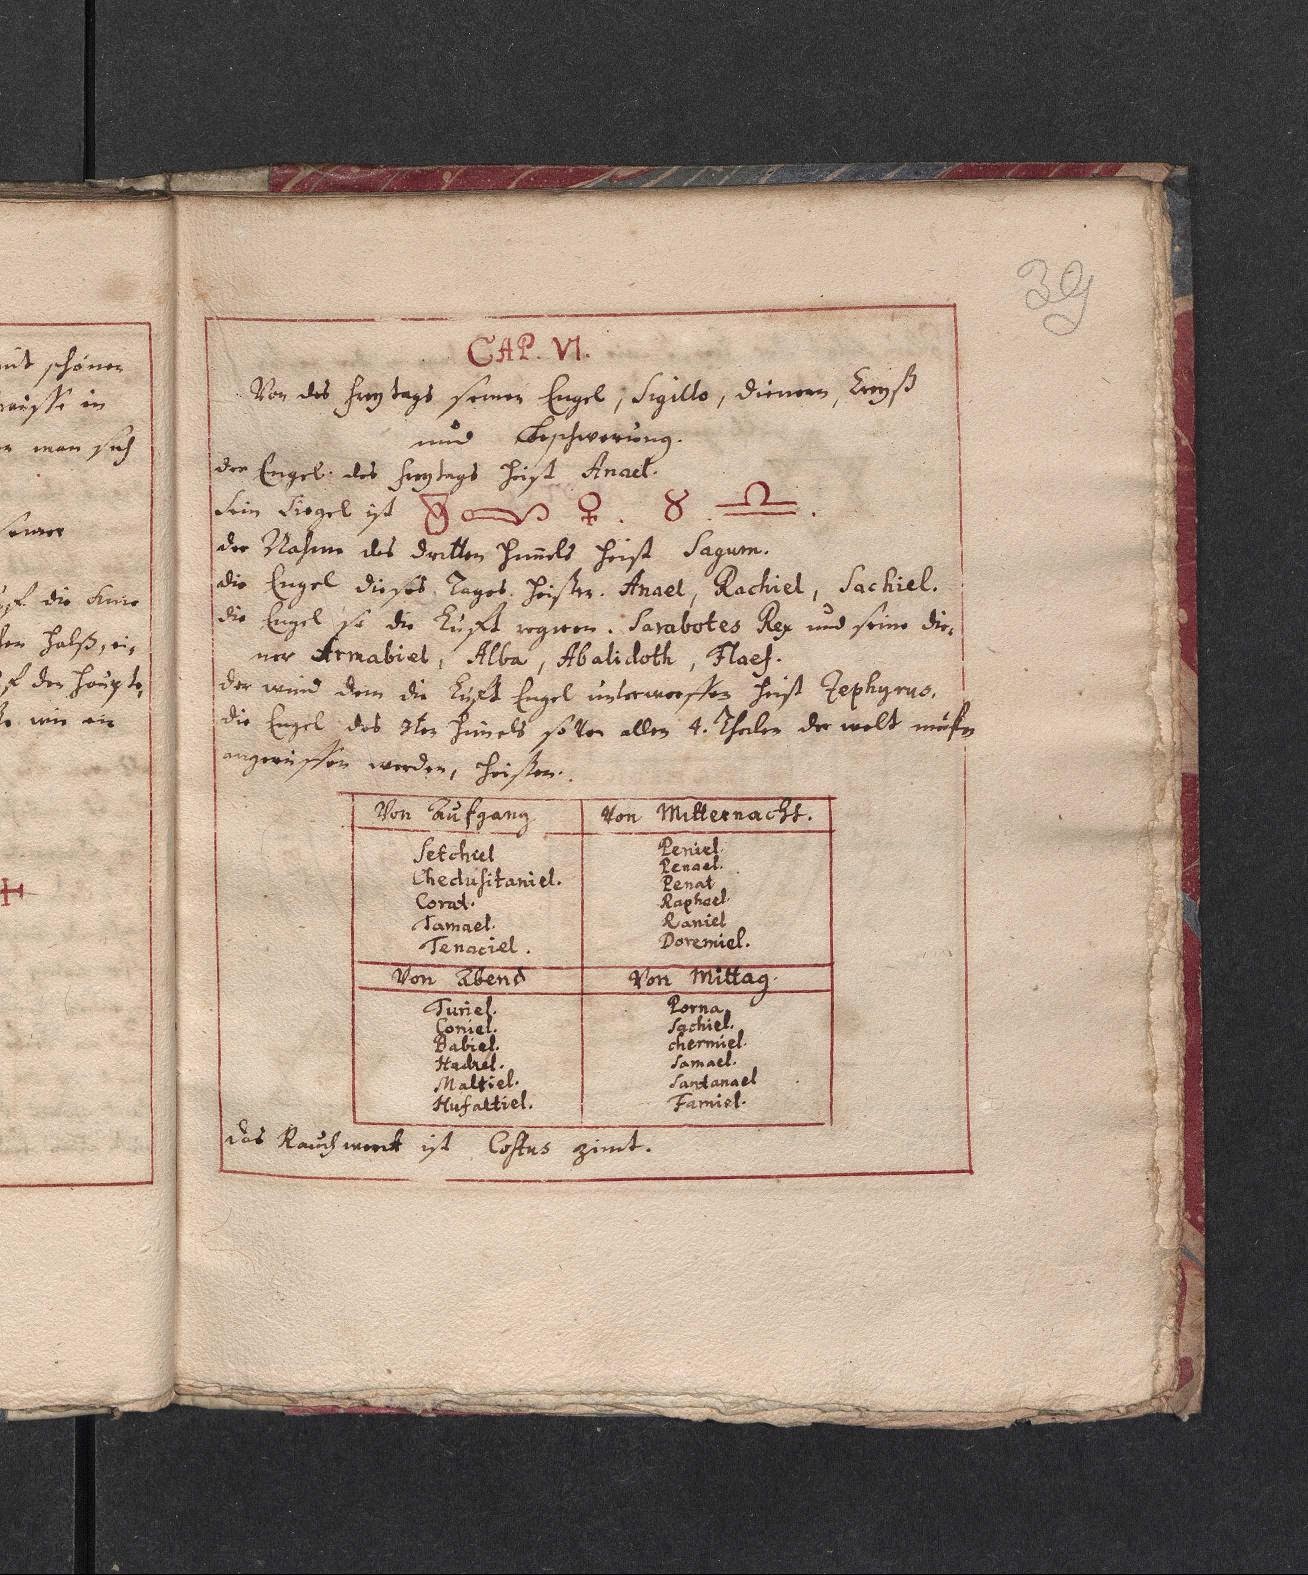 39
CAP. VI.
Von des Freytags seinen Engel, Sigillo, dienern, Kreyß
und Beschwerung.
der Engel des Freytags heist Anael.
sein Siegel ist ♀. ♉. ♎.
der Nahme des dritten Himels heist Sagum.
die Engel dieses Tages heissen. Anael, Rachiel, Sachiel.
die Engel so die Luft regiren. Sarabotes Rex und seine die-
ner Armabiel, Alba, Abalidoth, Flaef.
der wind dem die Luft Engel unterworffen heist Zephyrus.
die Engel des 3ten Himels so von allen 4. Theilen der welt
angeruffen werden, heissen.
Von Aufgang Von Mitternacht.
Setchiel
Chedusitaniel.
Corat.
Tamael.
Tenaciel.
Peniel.
Penael.
Penat
Raphael.
Raniel
Doremiel.
Von Abend Von Mittag.
Turiel.
Coniel.
Babiel.
Kadiel.
Maltiel.
Hufaltiel.
Porna.
Sachiel.
chermiel.
Samael.
Santanael
Famiel.
das Rauchwerk ist Costus zimt.
schöner
in
man sich
seiner
die Knie
halß, ei-
den Haupte,
wie ein